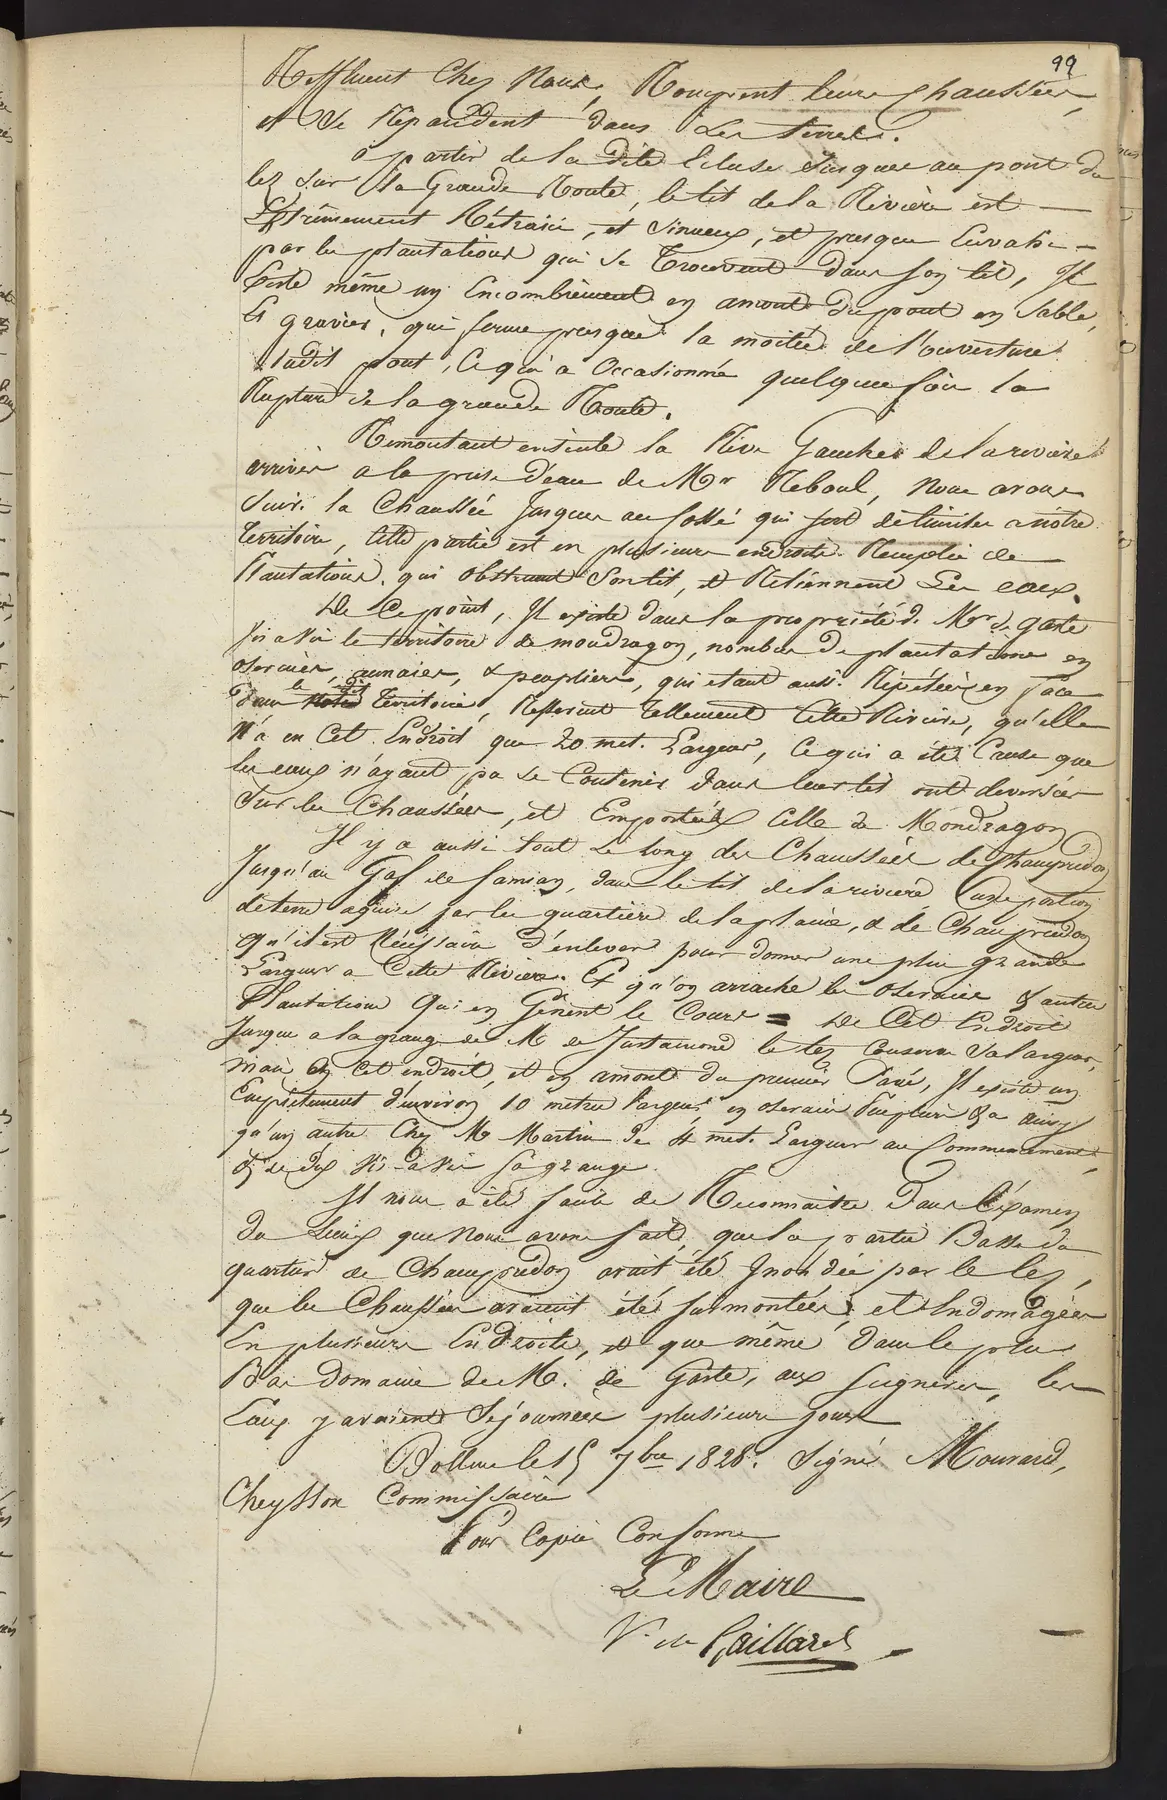 99
Reffluent Chez Nous, Rompent leurs Chaussées,
et Se Répandent dans Les terres.
à partir de la dite Ecluse Jusques au pont du
lez sur la Grande Route, le lit de la Rivière est —
Extrêmement Rétraici, et Sinueux, et presque Envahi —
par les plantations qui se Trouvent dans son lit, Il
Existe même un Encombrement en amont du pont en Sable,
Et gravier, qui ferme presque la moitié de l'ouverture
dudit pont, Ce qui a Occasionné quelques fois la
Rupture de la grande Route.
Remontant ensuite la Rive Gauche de la rivière
arrivés a la prise d'eau de Mr Reboul, Nous avons
Suivi la Chaussée Jusques au fossé qui sert de limite a notre
Territoire, Cette partie est en plusieurs endroits Remplie de
Plantations qui obstruent Son lit, et Retiennent Les eaux.
De Ce point, Il existe dans la propriété de Mr de Gaste
vis a Vis le territoire de mondragon, nombre de plantations en
oseraies, aunaies, & peupliers, qui etant aussi Répétées en face
dans le dit Territoire, Resserent Tellement Cette Rivière, qu'elle
N'a en Cet Endroit que 20 met. Largeur, Ce qui a été Cause que
les eaux n'ayant pu se Contenir dans leur lit ont deversées
Sur les Chaussées, et Emportées Celle de Mondragon
Il y a aussi tout Le long des Chaussées de Champredon
Jusqu'au Gas de Samian, dans le lit de la rivière une portion
de terre aquise par les quartiers de la plaine, & de Champredon
qu'il est Nécéssaire d'enlever pour donner une plus grande
Largeur a Cette Rivière. Et qu'on arrache les oseraies & autres
Plantations Qui en Gênent le Cours = De Cet Endroit
Jusque a la grange de M de Justamond le lez Conserve Sa largeur,
mais en Cet endroit, et en amont du premier Pavé, Il existe un
Empietement d'environ 10 metres Largeur en oseraies Peupliers & a ainsy
qu'un autre Chez Mr Martin de 4 met. Largeur au Commencement,
& de dix Vis-a-Vis Sa grange.
Il nous a été facile de Reconnaitre dans l'éxamen
des Lieux que Nous avons fait, que la partie Basse du
quartier de Champredon avait été Inondée par le lez,
que les Chaussées avaient été surmontées, et Endomagées
En plusieurs Endroits, et que même dans le plus
Bas domaine de M. de Gaste, aux Seigneres, les
Eaux y avaient Séjournées plusieurs jours
Bollene le 15 7bre 1828. Signé Mourard,
Cheysson Commissaire
Pour Copie Conforme
Le Maire
Vr de Gaillard